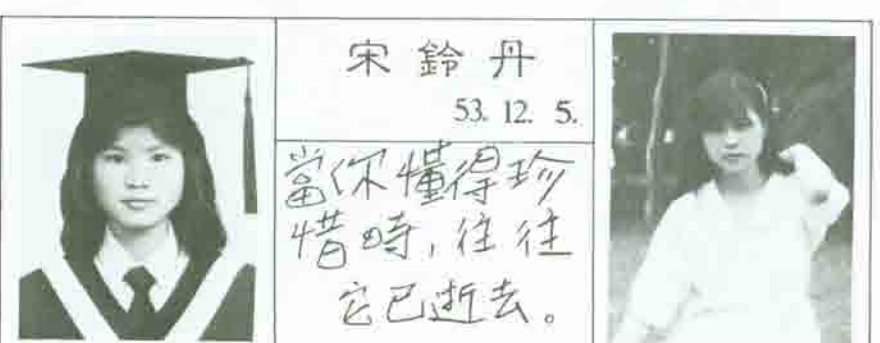 宋鈴丹
53. 12. 5.
當你懂得珍
惜時,往往
它已逝去。